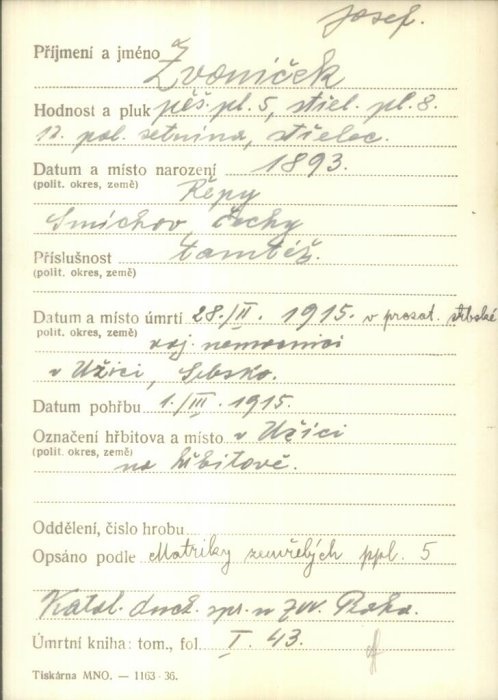 Josef.
Příjmení a jméno Zvoníček
Hodnost a pluk pěš. pl. 5, střel. pl. 8.
12. pol. setnina, střelec.
Datum a místo narození 1893.
(polit. okres, země) Řepy
Smíchov, Čechy
Příslušnost tamtéž.
(polit. okres, země)
Datum a místo úmrtí 28./II. 1915. v prozat. srbské
polit. okres, země) voj. nemocnici
v Užici, Srbsko.
Datum pohřbu 1./III. 1915.
Označení hřbitova a místo v Užici
(polit. okres, země) na hřbitově.
Oddělení, číslo hrobu
Opsáno podle Matriky zemřelých ppl. 5
Katol. duch. spr. u zvv. Praha.
Úmrtní kniha: tom., fol. I. 43.
Tiskárna MNO. — 1163-36.